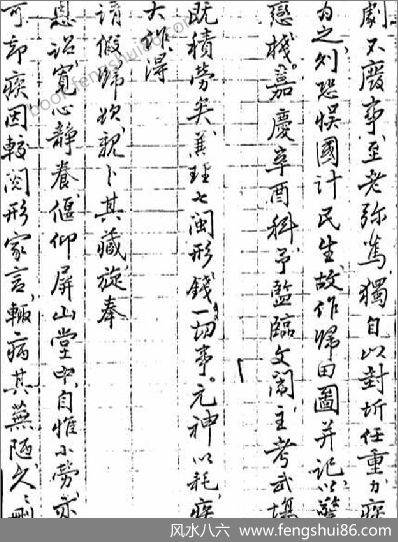 劇不廢事至老弥篤獨自以對圻任重力疾
为之则恐悮國計民生故作歸田圖并记以
戀棧嘉慶辛酉科予監臨文闈主考武
既積勞矣兼理七闽形錢一切事元神以耗疾
大作得
請假歸欤親卜其藏旋奉
恩诏寛心靜養偃仰屏山堂中自惟小劳亦
可却疾因輙阅形家言輙病其蕪陋久之
风水八六 www.fengshui86.com